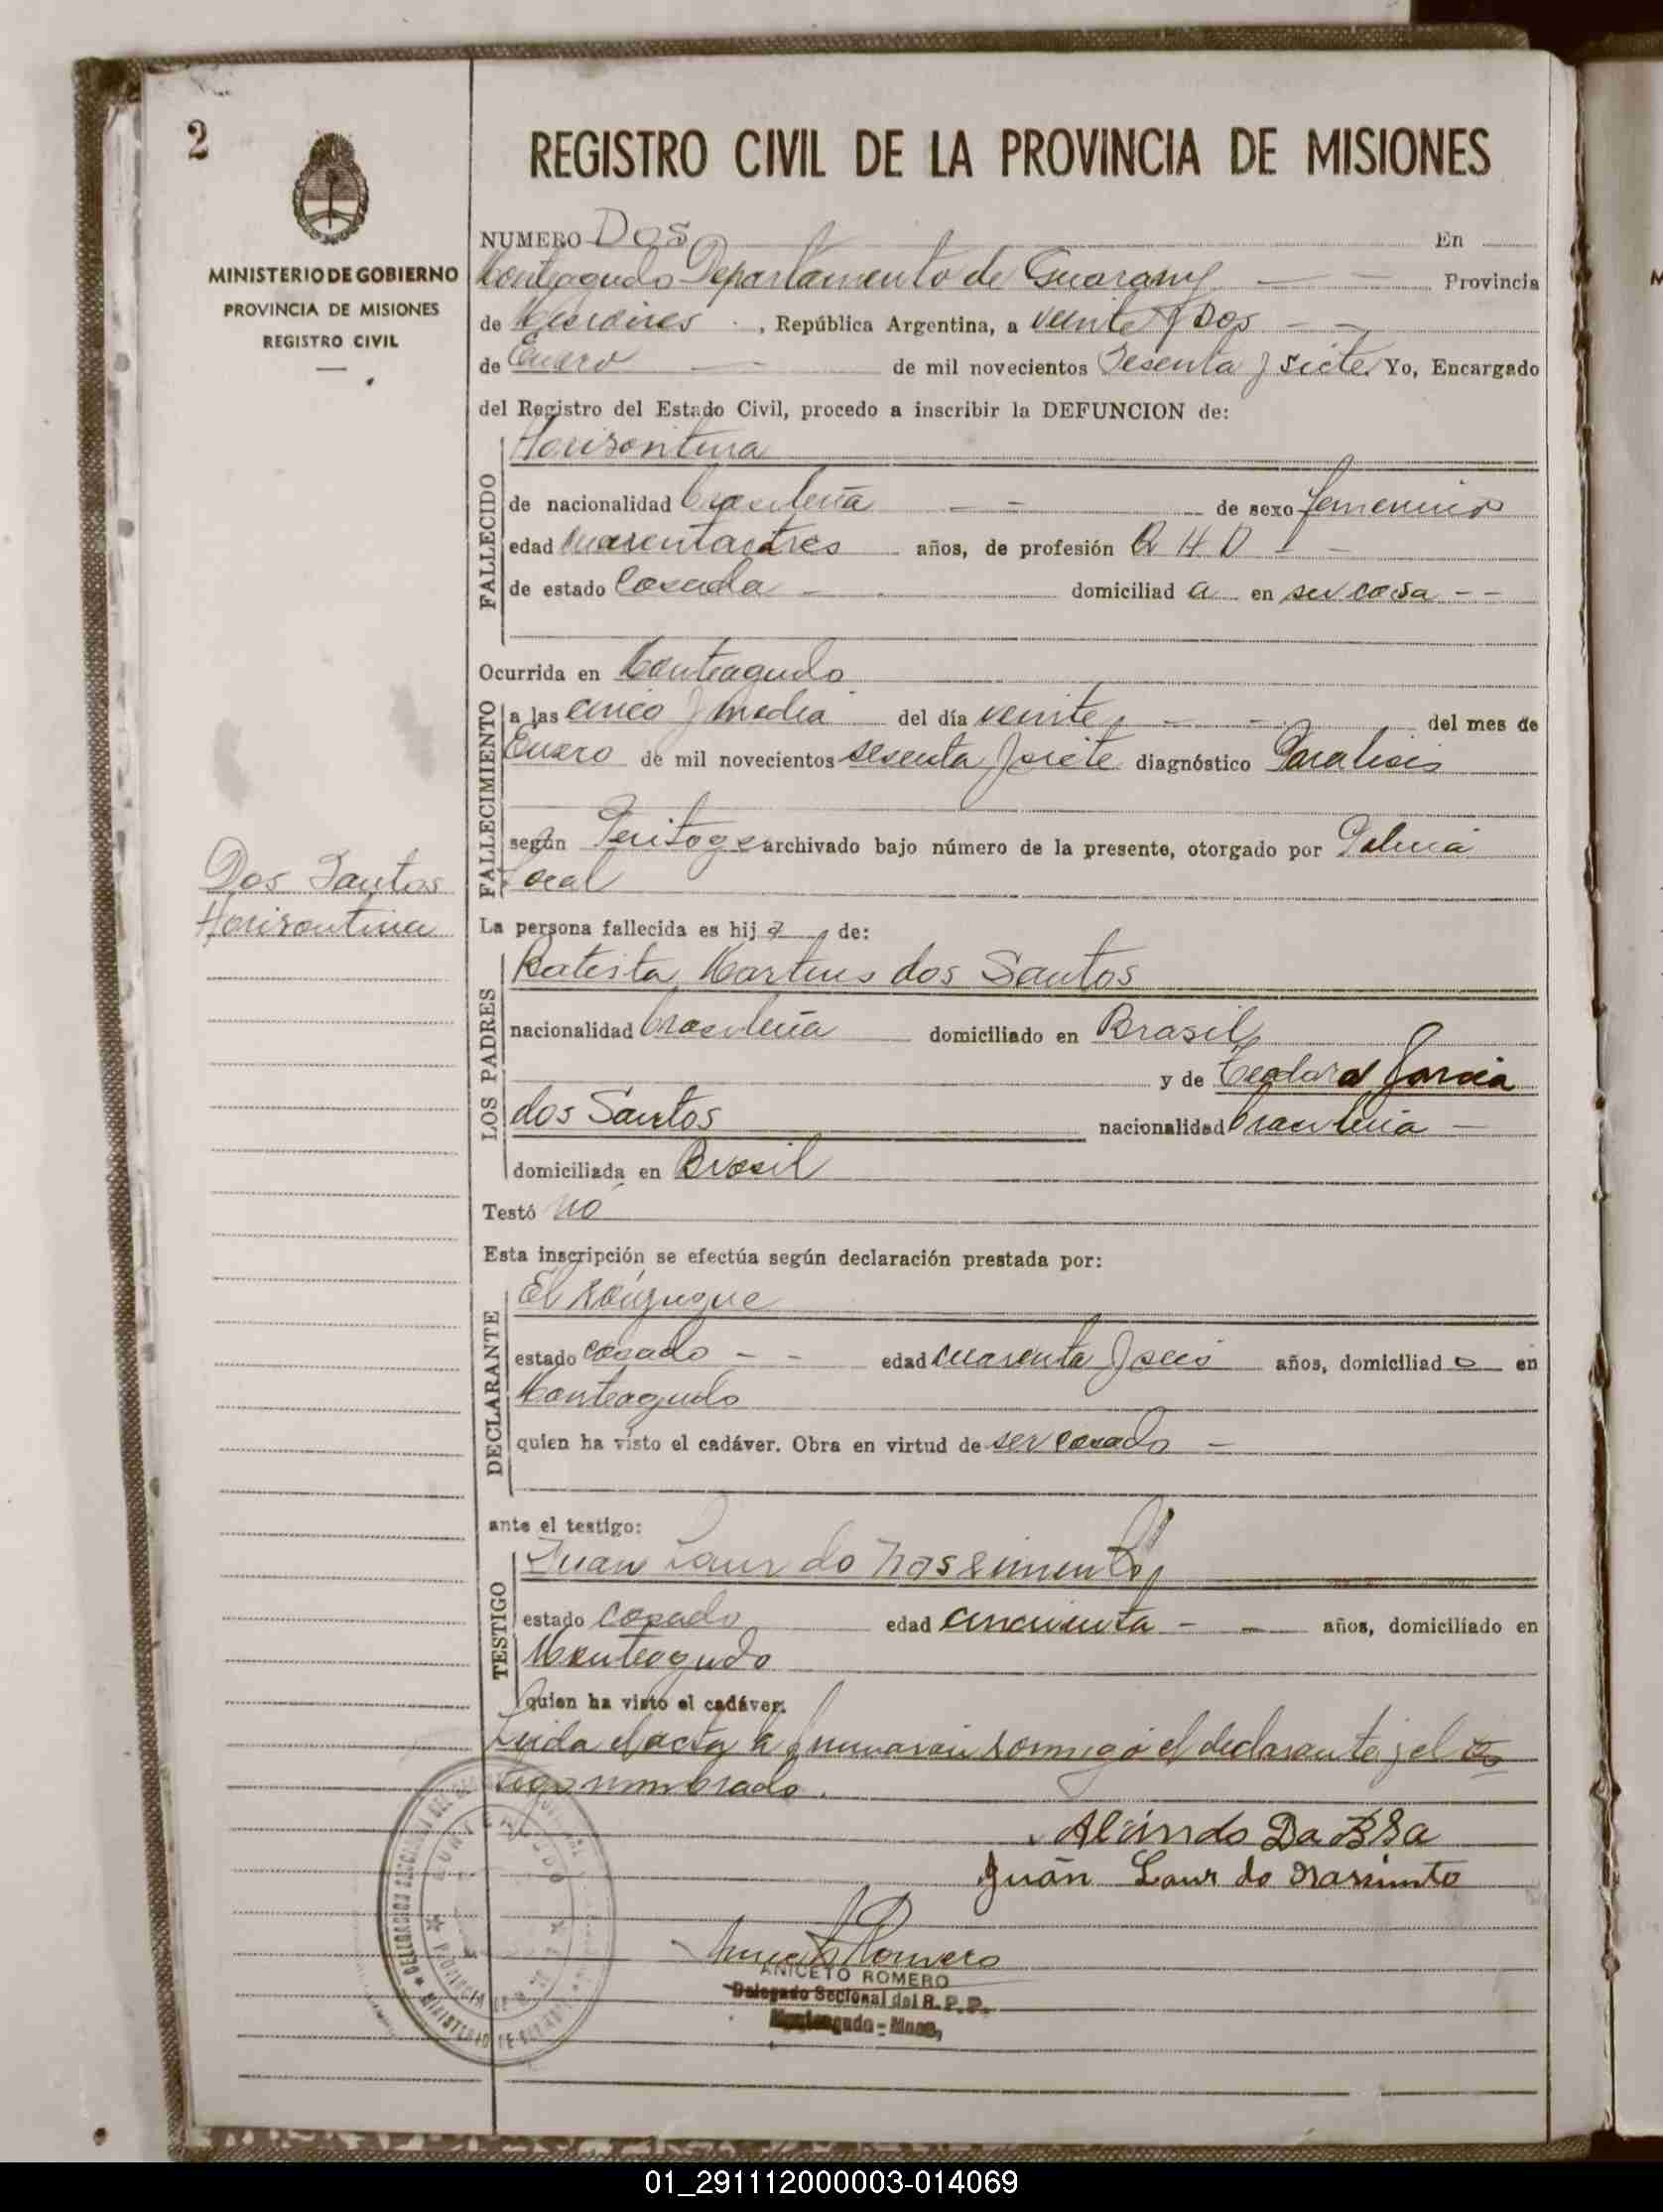 2
REGISTRO CIVIL DE LA PROVINCIA DE MISIONES
MINISTERIO DE GOBIERNO
PROVINCIA DE MISIONES
REGISTRO CIVIL
NUMERO Dos En
Monteagudo Departamento de Guarany Provincia
de Misiones, República Argentina, a veinte y Dos
de Enero de mil novecientos Sesenta y siete Yo, Encargado
del Registro del Estado Civil, procedo a inscribir la DEFUNCION de:
Horisontina
FALLECIDO
de nacionalidad brasileña de sexo femenino
edad cuarentaitres años, de profesión Q H D
de estado Casada domiciliad a en su casa
Ocurrida en Monteagudo
FALLECIMIENTO
a las cinco y media del día veinte del mes de
Enero de mil novecientos sesenta y siete diagnóstico Paralisis
según Peritage archivado bajo número de la presente, otorgado por
local
Dos Santos
Horisontina
La persona fallecida es hij a de:
LOS PADRES
Batista Martins dos Santos
nacionalidad brasileña domiciliado en Brasil
y de Teodora Garcia
dos Santos nacionalidad brasileña
domiciliada en Brasil
Testó no
Esta inscripción se efectúa según declaración prestada por:
DECLARANTE
El Conyugue
estado casado edad cuarenta y seis años, domiciliad o en
Monteagudo
quien ha visto el cadáver. Obra en virtud de ser casado
ante el testigo:
TESTIGO
Juan Laur do Nassimento
estado casado edad cincuenta años, domiciliado en
Monteagudo
quien ha visto el cadáver.
Leida el acta la firmaran conmigo el declarante y el tes
tigo nombrado.
Da
Juán Laur do Nassimto
Aniceto Romero
ANICETO ROMERO
Delegado Seccional del R. P. P.
Monteagudo - Mnes,
MONTEAGUDO
01_291112000003-014069